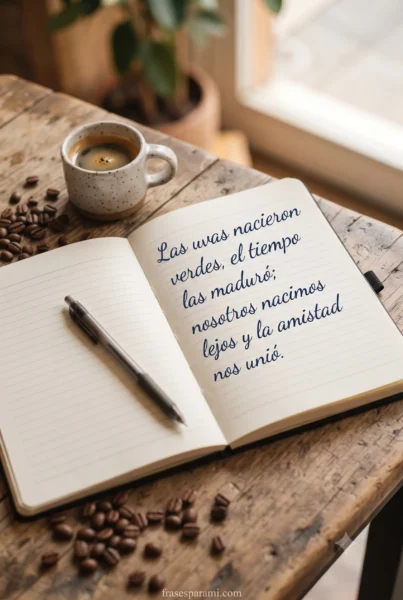 Las uvas nacieron
verdes, el tiempo
las maduró;
nosotros nacimos
lejos y la amistad
nos unió.
frasesparami.com